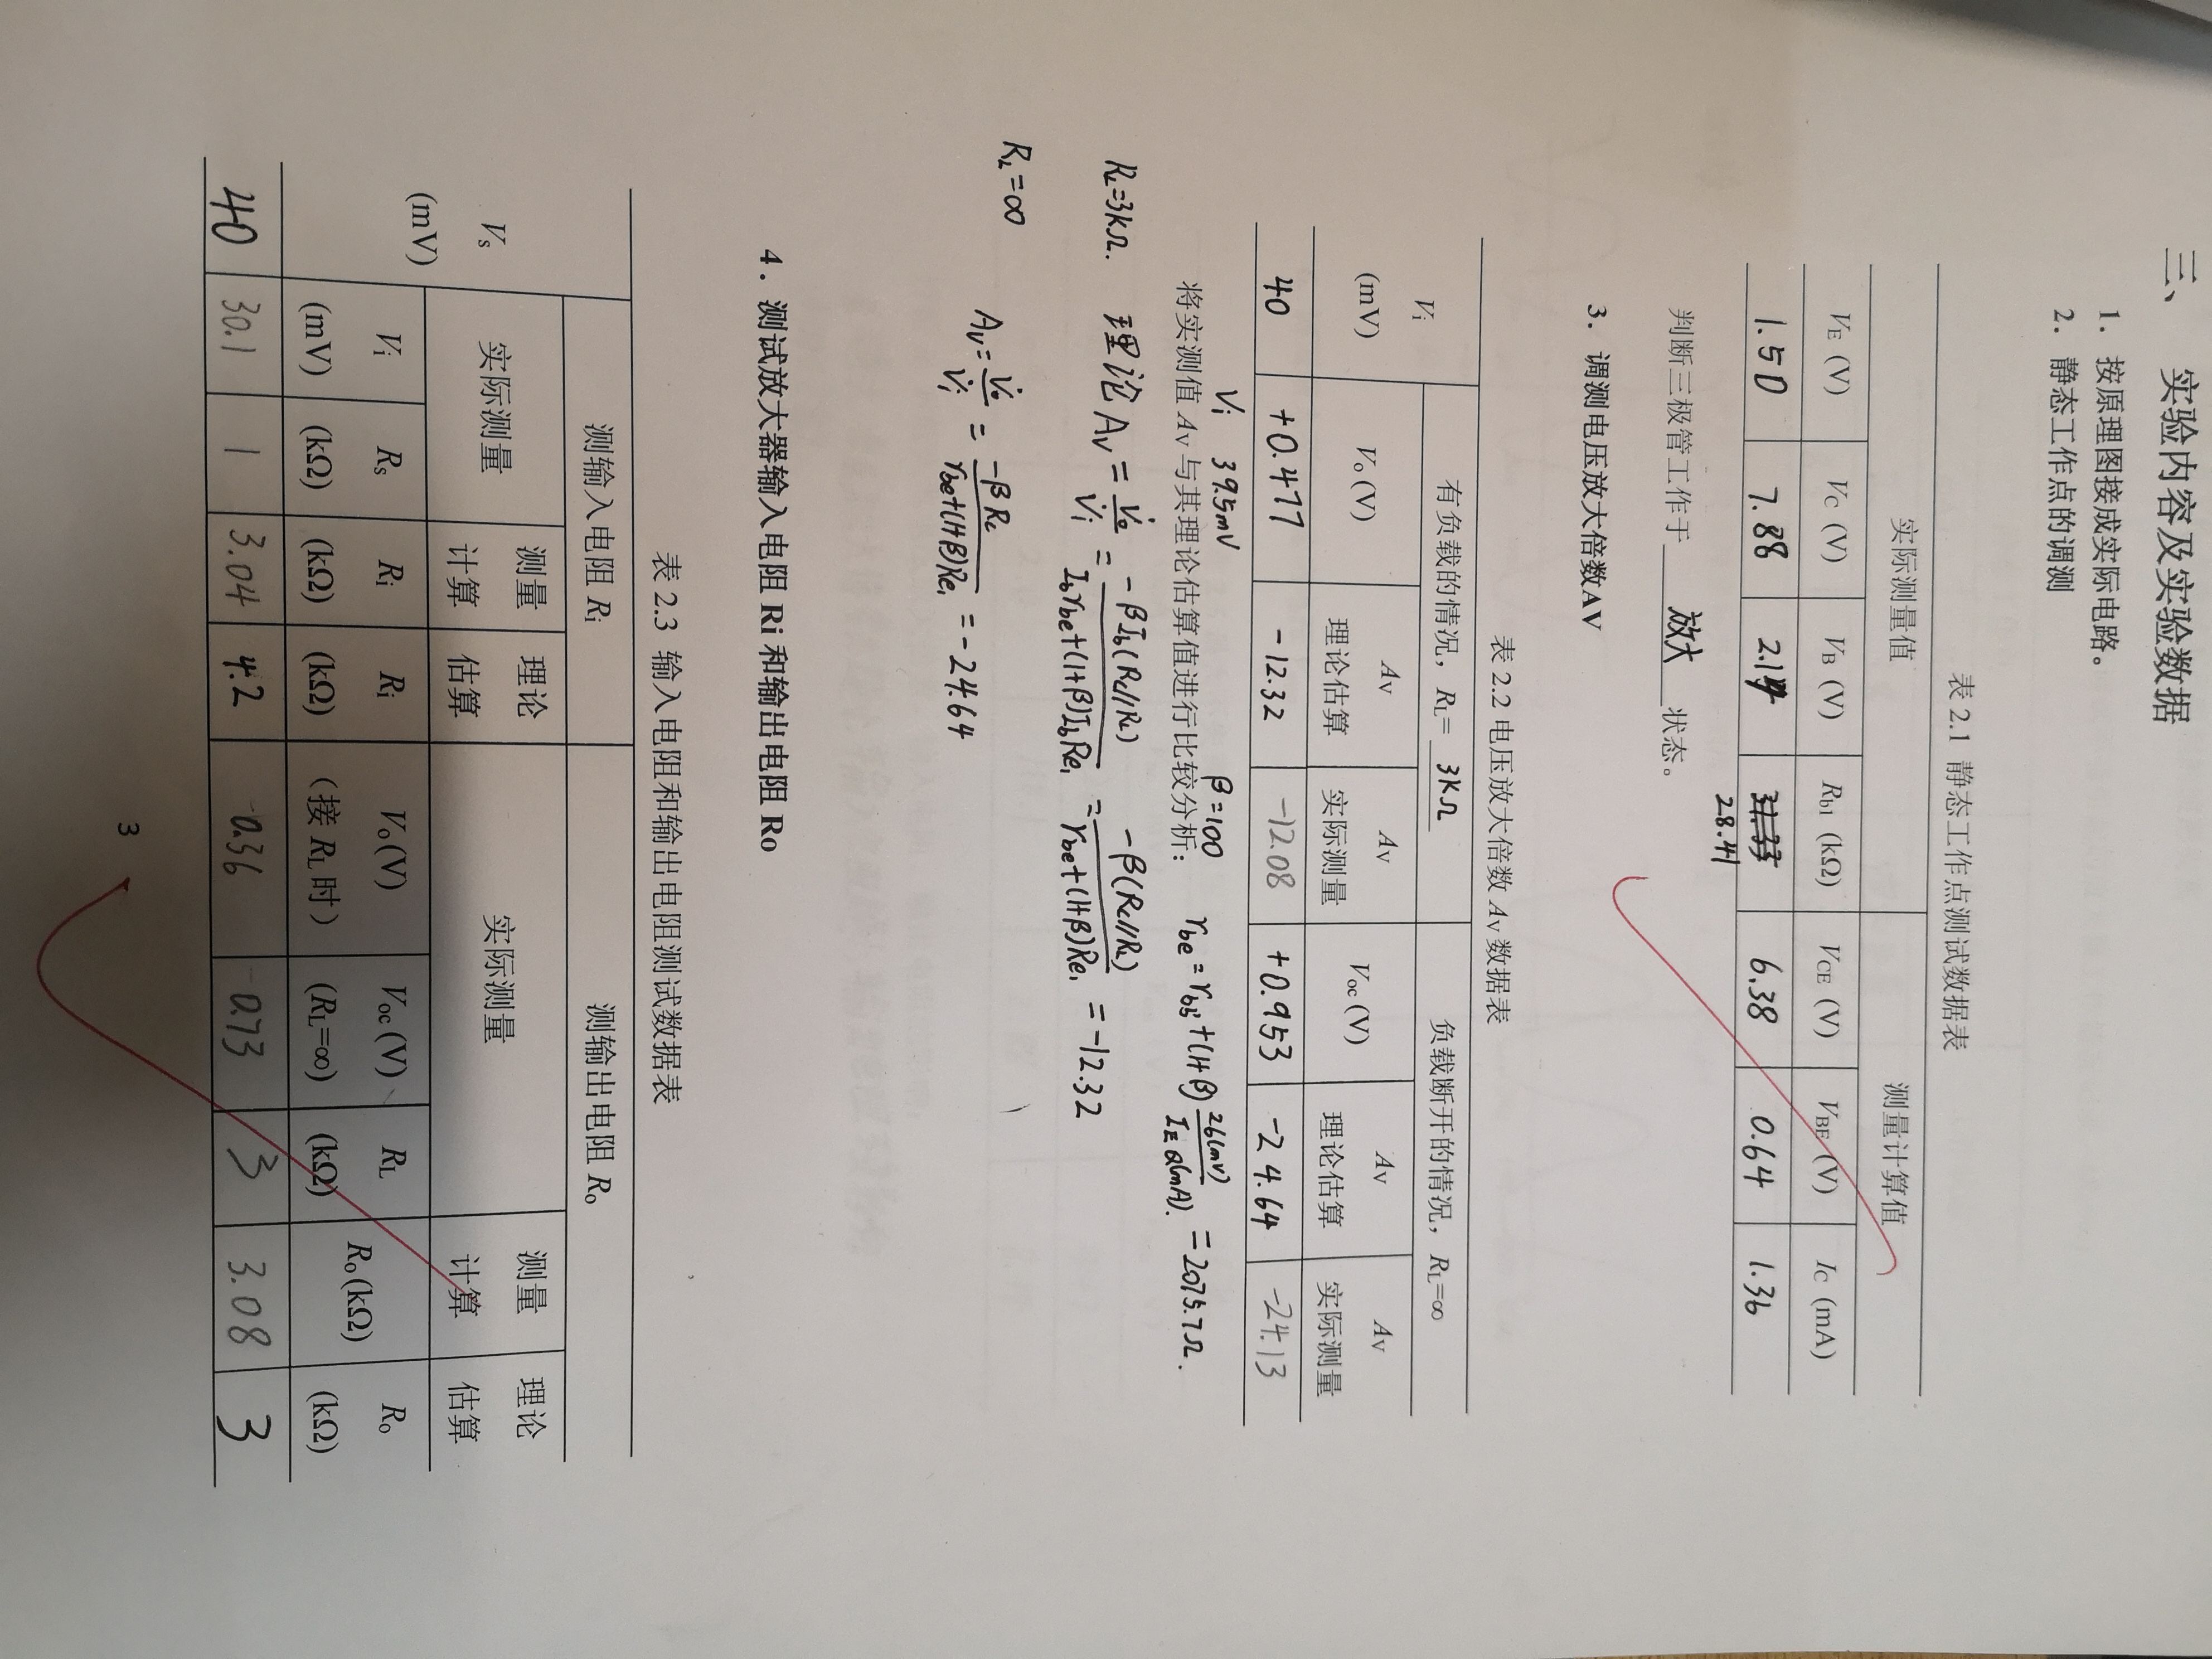 三、 实验内容及实验数据
1. 按原理图接成实际电路。
2. 静态工作点的调测
表 2.1 静态工作点测试数据表
实际测量值 测量计算值
VE (V) VC (V) VB (V) Rb1 (kΩ) VCE (V) VBE (V) IC (mA)
1.50 7.88 2.14 31.33 6.38 0.64 1.36
28.41
判断三极管工作于 放大 状态。
3. 调测电压放大倍数AV
表 2.2 电压放大倍数 Av 数据表
Vi (mV) 有负载的情况，RL= 3KΩ 负载断开的情况，RL=∞
Vo (V) Av 理论估算 Av 实际测量 Voc (V) Av 理论估算 Av 实际测量
40 +0.477 -12.32 -12.08 +0.953 -24.64 -24.13
Vi 39.5mV β=100 rbe = rbb' + (1+β) 26(mV) / IEQ(mA). = 2075.7Ω.
将实测值 Av 与其理论估算值进行比较分析：
RL=3kΩ. 理论 Av = V̇o / V̇i = -βIb(Rc//RL) / Ibrbe+(1+β)IbRe1 = -β(Rc//RL) / rbe+(1+β)Re1 = -12.32
RL=∞ Av = V̇o / V̇i = -βRc / rbe+(1+β)Re1 = -24.64
4. 测试放大器输入电阻 Ri 和输出电阻 Ro
表 2.3 输入电阻和输出电阻测试数据表
Vs (mV) 测输入电阻 Ri 测输出电阻 Ro
实际测量 测量计算 理论估算 实际测量 测量计算 理论估算
Vi (mV) Rs (kΩ) Ri (kΩ) Ri (kΩ) Vo (V) （接 RL 时） Voc (V) (RL=∞) RL (kΩ) Ro(kΩ) Ro (kΩ)
40 30.1 1 3.04 4.2 -0.36 -0.73 3 3.08 3
3